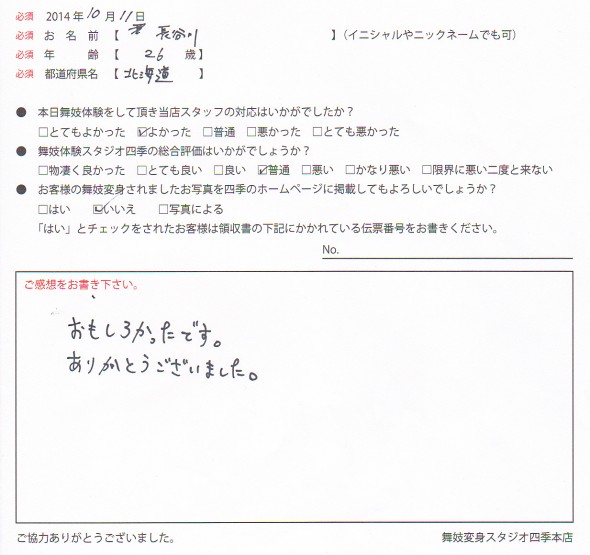 必須 2014年10月11日
必須 お名前【 長谷川 】(イニシャルやニックネームでも可)
必須 年齢【 26 歳】
必須 都道府県名【 北海道 】
● 本日舞妓体験をして頂き当店スタッフの対応はいかがでしたか?
□とてもよかった ☑よかった □普通 □悪かった □とても悪かった
● 舞妓体験スタジオ四季の総合評価はいかがでしょうか?
□物凄く良かった □とても良い □良い ☑普通 □悪い □かなり悪い □限界に悪い二度と来ない
● お客様の舞妓変身されましたお写真を四季のホームページに掲載してもよろしいでしょうか?
□はい ☑いいえ □写真による
「はい」とチェックをされたお客様は領収書の下記にかかれている伝票番号をお書きください。
No.
ご感想をお書き下さい。
おもしろかったです。
ありがとうございました。
ご協力ありがとうございました。
舞妓変身スタジオ四季本店